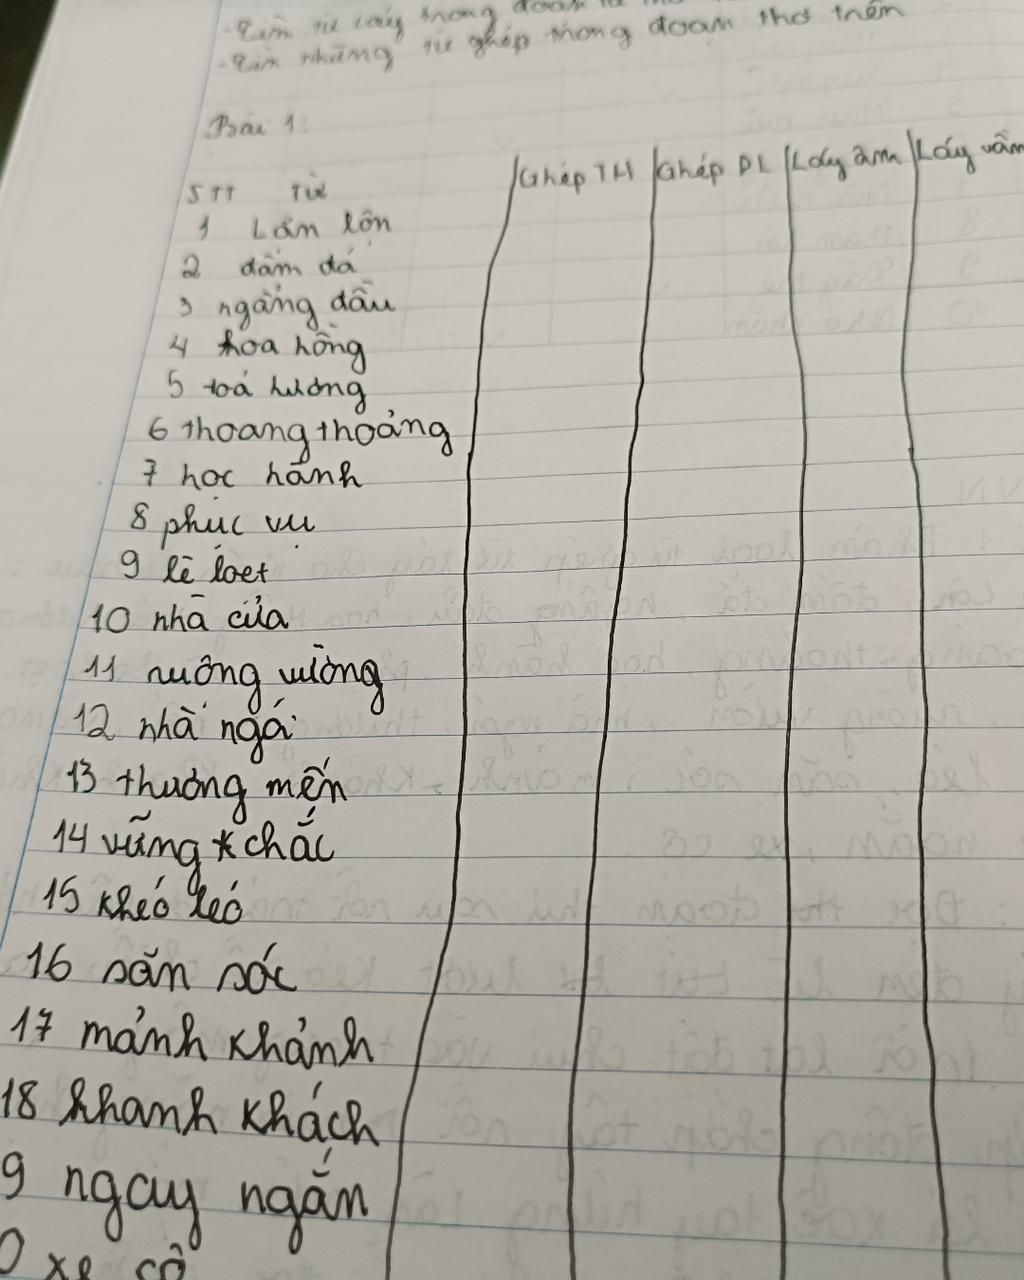 - Tìm từ láy trong đoạn
- Tìm những từ ghép trong đoạn thơ trên
Bài 1:
STT Từ Ghép TH Ghép PL Láy âm Láy vần
1 Lớn lên
2 đầm đá
3 ngẩng đầu
4 hoa hồng
5 toả hương
6 thoang thoảng
7 học hành
8 phục vụ
9 lẽ loẹt
10 nhà cửa
11 ruộng vườn
12 nhà ngói
13 thương mến
14 vững chắc
15 khéo léo
16 săn sóc
17 mảnh khảnh
18 khanh khách
9 ngay ngắn
0 xe cộ